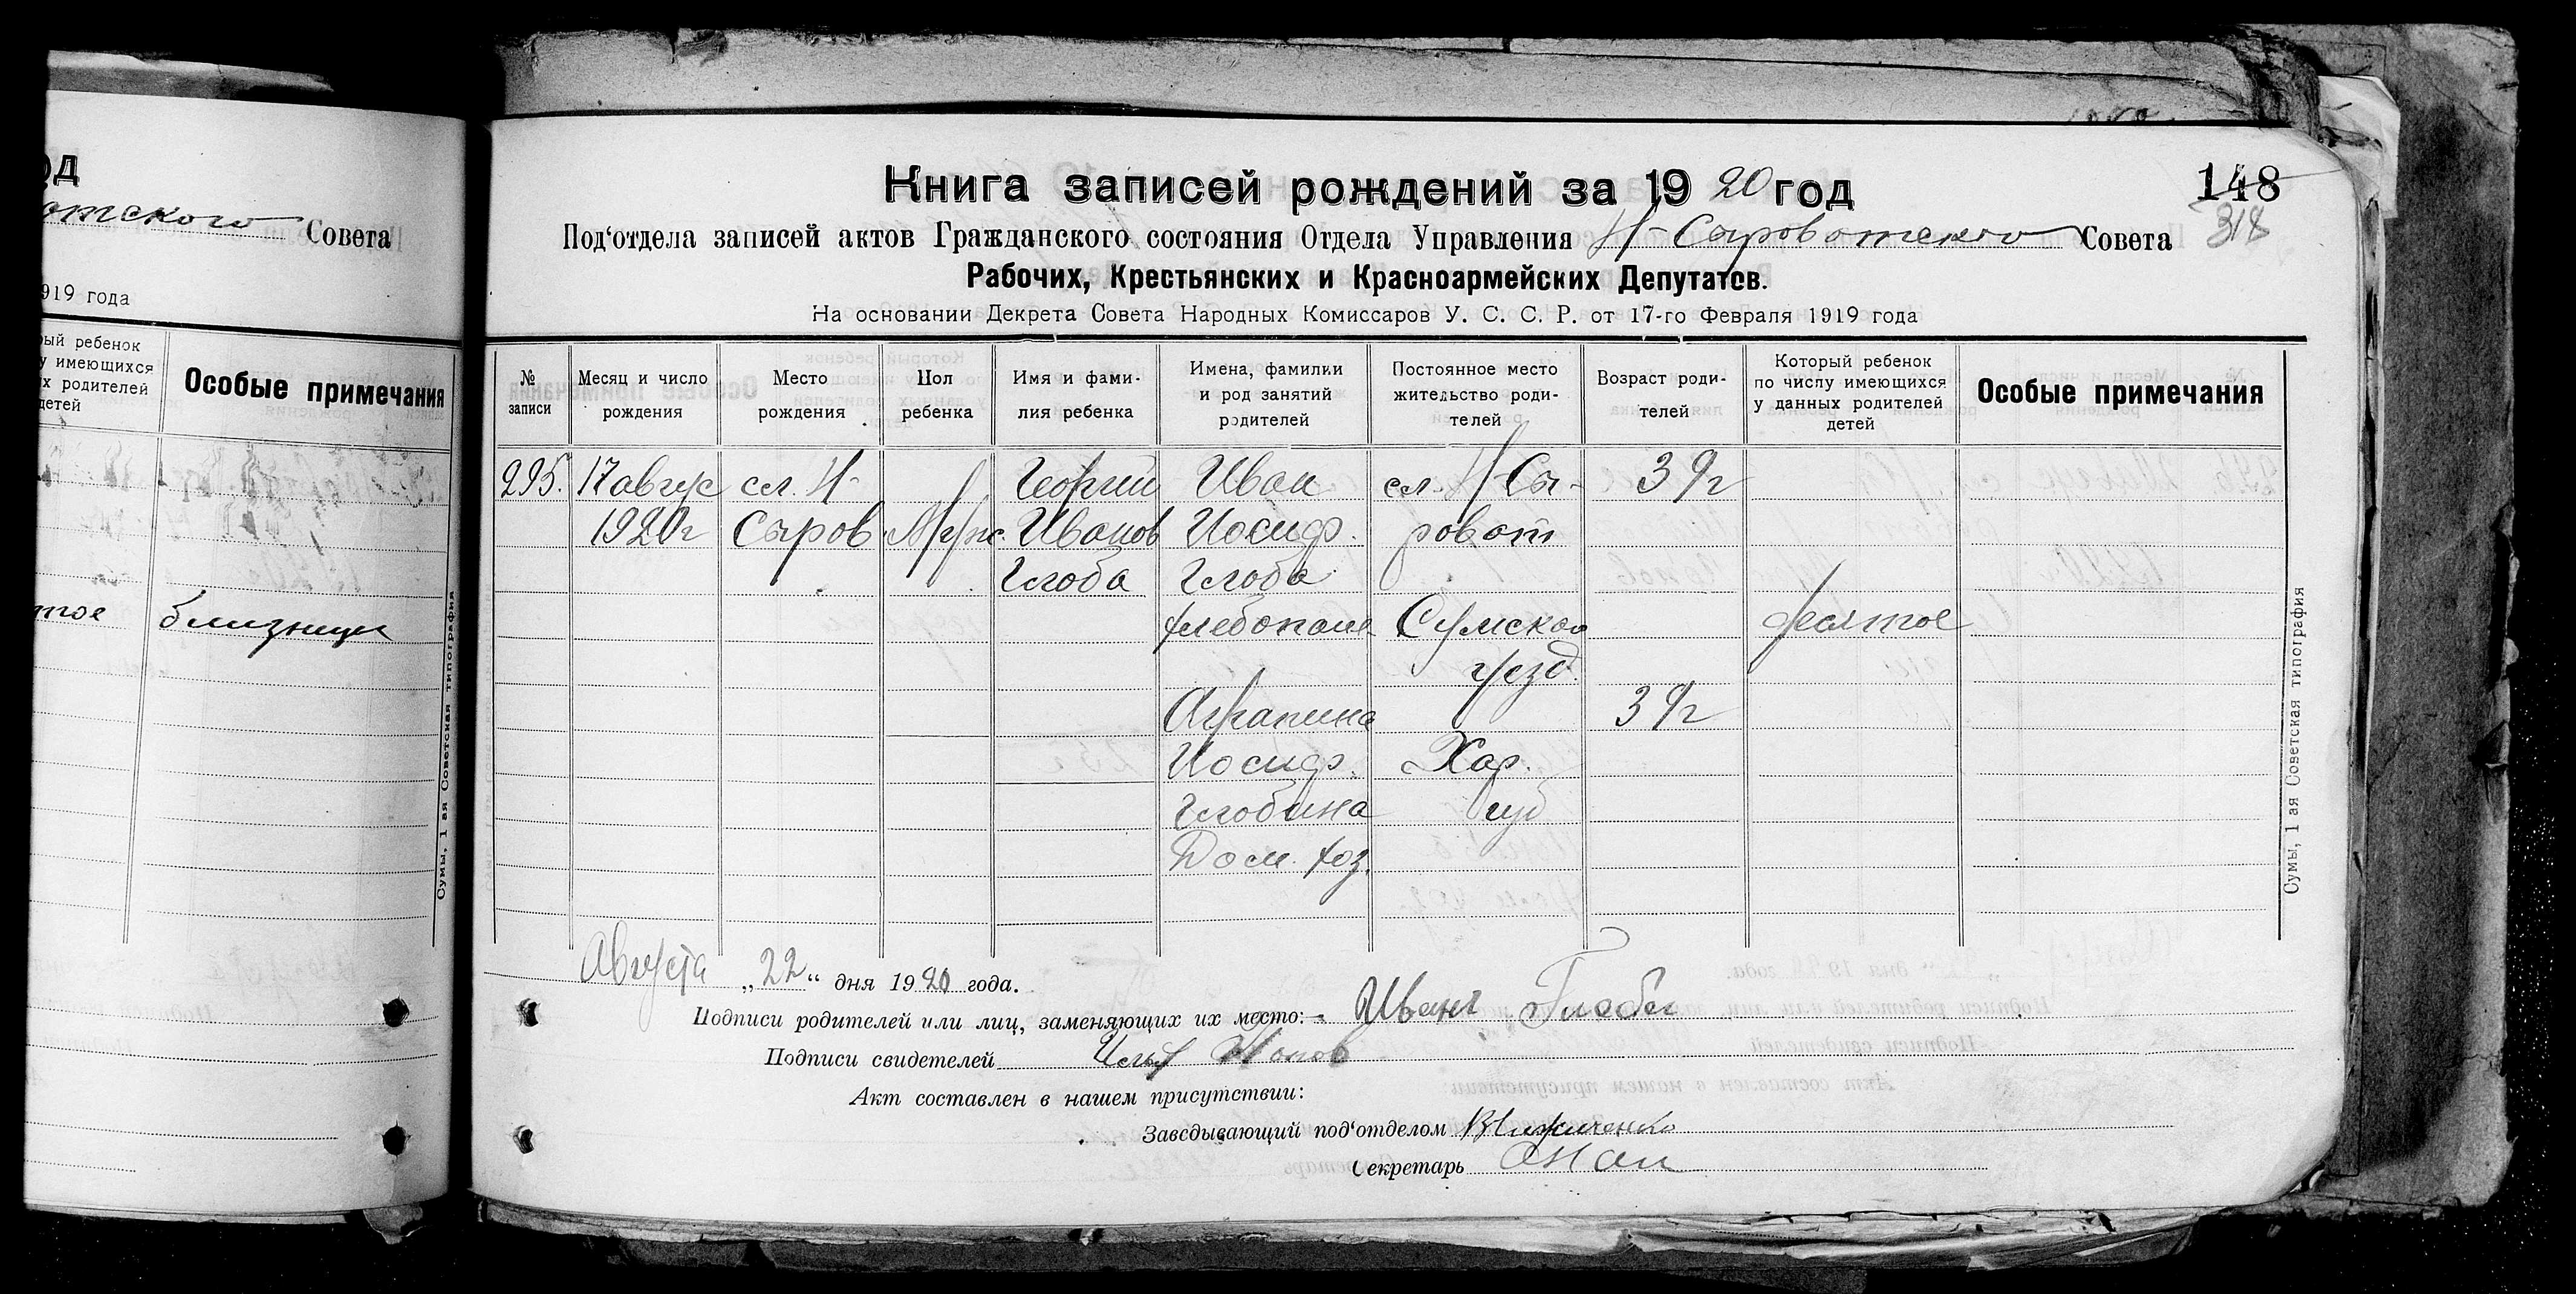 од
отского Совета
1919 года
рый ребенок
у имеющихся
ых родителей
детей
Особые примечания
тое
близнецы
Сумы, 1 ая Советская типография
Книга записей рождений за 1920 год
148
318
Под‘отдела записей актов Гражданского состояния Отдела Управления Н-Сыроватского Совета
Рабочих, Крестьянских и Красноармейских Депутатов.
На основании Декрета Совета Народных Комиссаров У. С. С. Р. от 17-го Февраля 1919 года
№ записи
Месяц и число рождения
Место рождения
Пол ребенка
Имя и фамилия ребенка
Имена, фамилии и род занятий родителей
Постоянное место жительство родителей
Возраст родителей
Который ребенок по числу имеющихся у данных родителей детей
Особые примечания
295. 17 авгус сл. Н- Георгий Иван сл. Н-Сы- 39г
1920г Сыров Мужс. Иванов Иосиф. роват
Глоба Глоба
хлебопаш Сумского десятое
уезд.
Аграпина 39г
Иосиф. Хар.
Глобина губ
Дом. хоз.
Сумы, 1 ая Советская типография
Августа „22“ дня 1920 года.
Подписи родителей или лиц, заменяющих их место:- Иван Глоба
Подписи свидетелей
Акт составлен в нашем присутствии:
Заведывающий под‘отделом
Секретарь